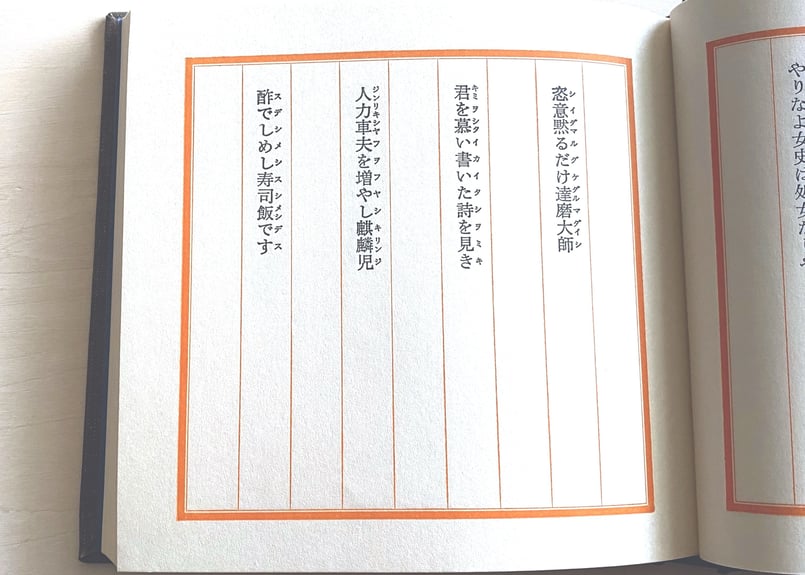 やりなよ女史は処女なりや
シイダマルダケダルマダイシ
恣意黙るだけ達磨大師
キミヲシタイカイタシヲミキ
君を慕い書いた詩を見き
ジンリキシヤフヲフヤシキリンジ
人力車夫を増やし麒麟児
スデシメシスシメシデス
酢でしめし寿司飯です